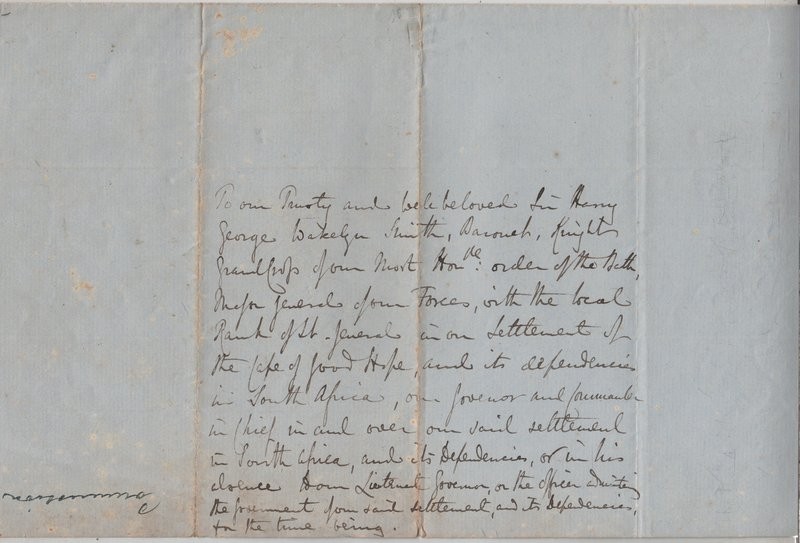 To our Trusty and well beloved Sir Harry
George Wakelyn Smith, Baronet, Knight
Grand Cross of our Most Honble: order of the Bath,
Major General of our Forces, with the local
Rank of Lt. General in our Settlement of
the Cape of Good Hope, and its dependencies
in South Africa, our Governor and Commander
in Chief in and over our said settlement
in South Africa, and its Dependencies, or in his
absence to our Lieutenant Governor, or the officer administering
the Government of our said settlement, and its Dependencies,
for the time being.